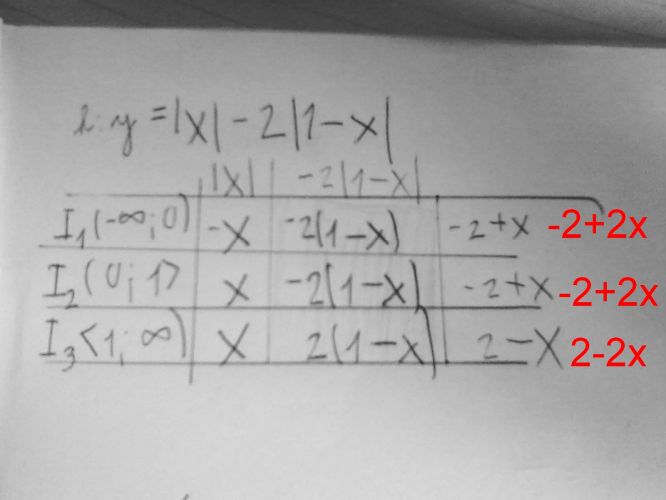 l: y = |x| - 2|1-x|
|x| -2|1-x|
I₁ (-∞; 0) -x -2(1-x) -2+x -2+2x
I₂ (0; 1> x -2(1-x) -2+x -2+2x
I₃ <1; ∞) x 2(1-x) 2-x 2-2x